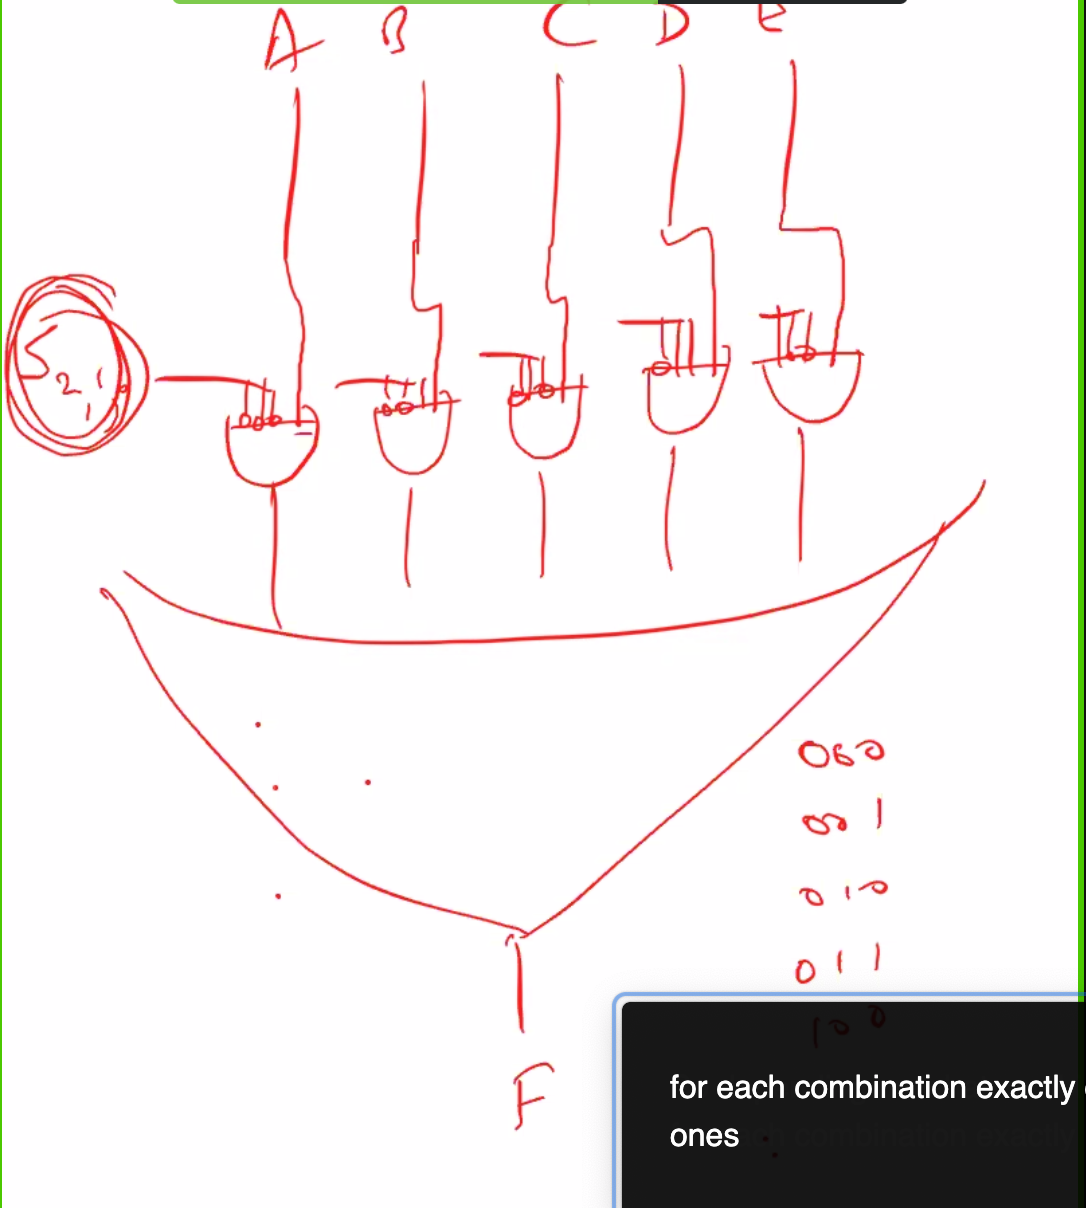 A B C D E
S
2 1
1
000
001
010
011
100
F
for each combination exactly
ones